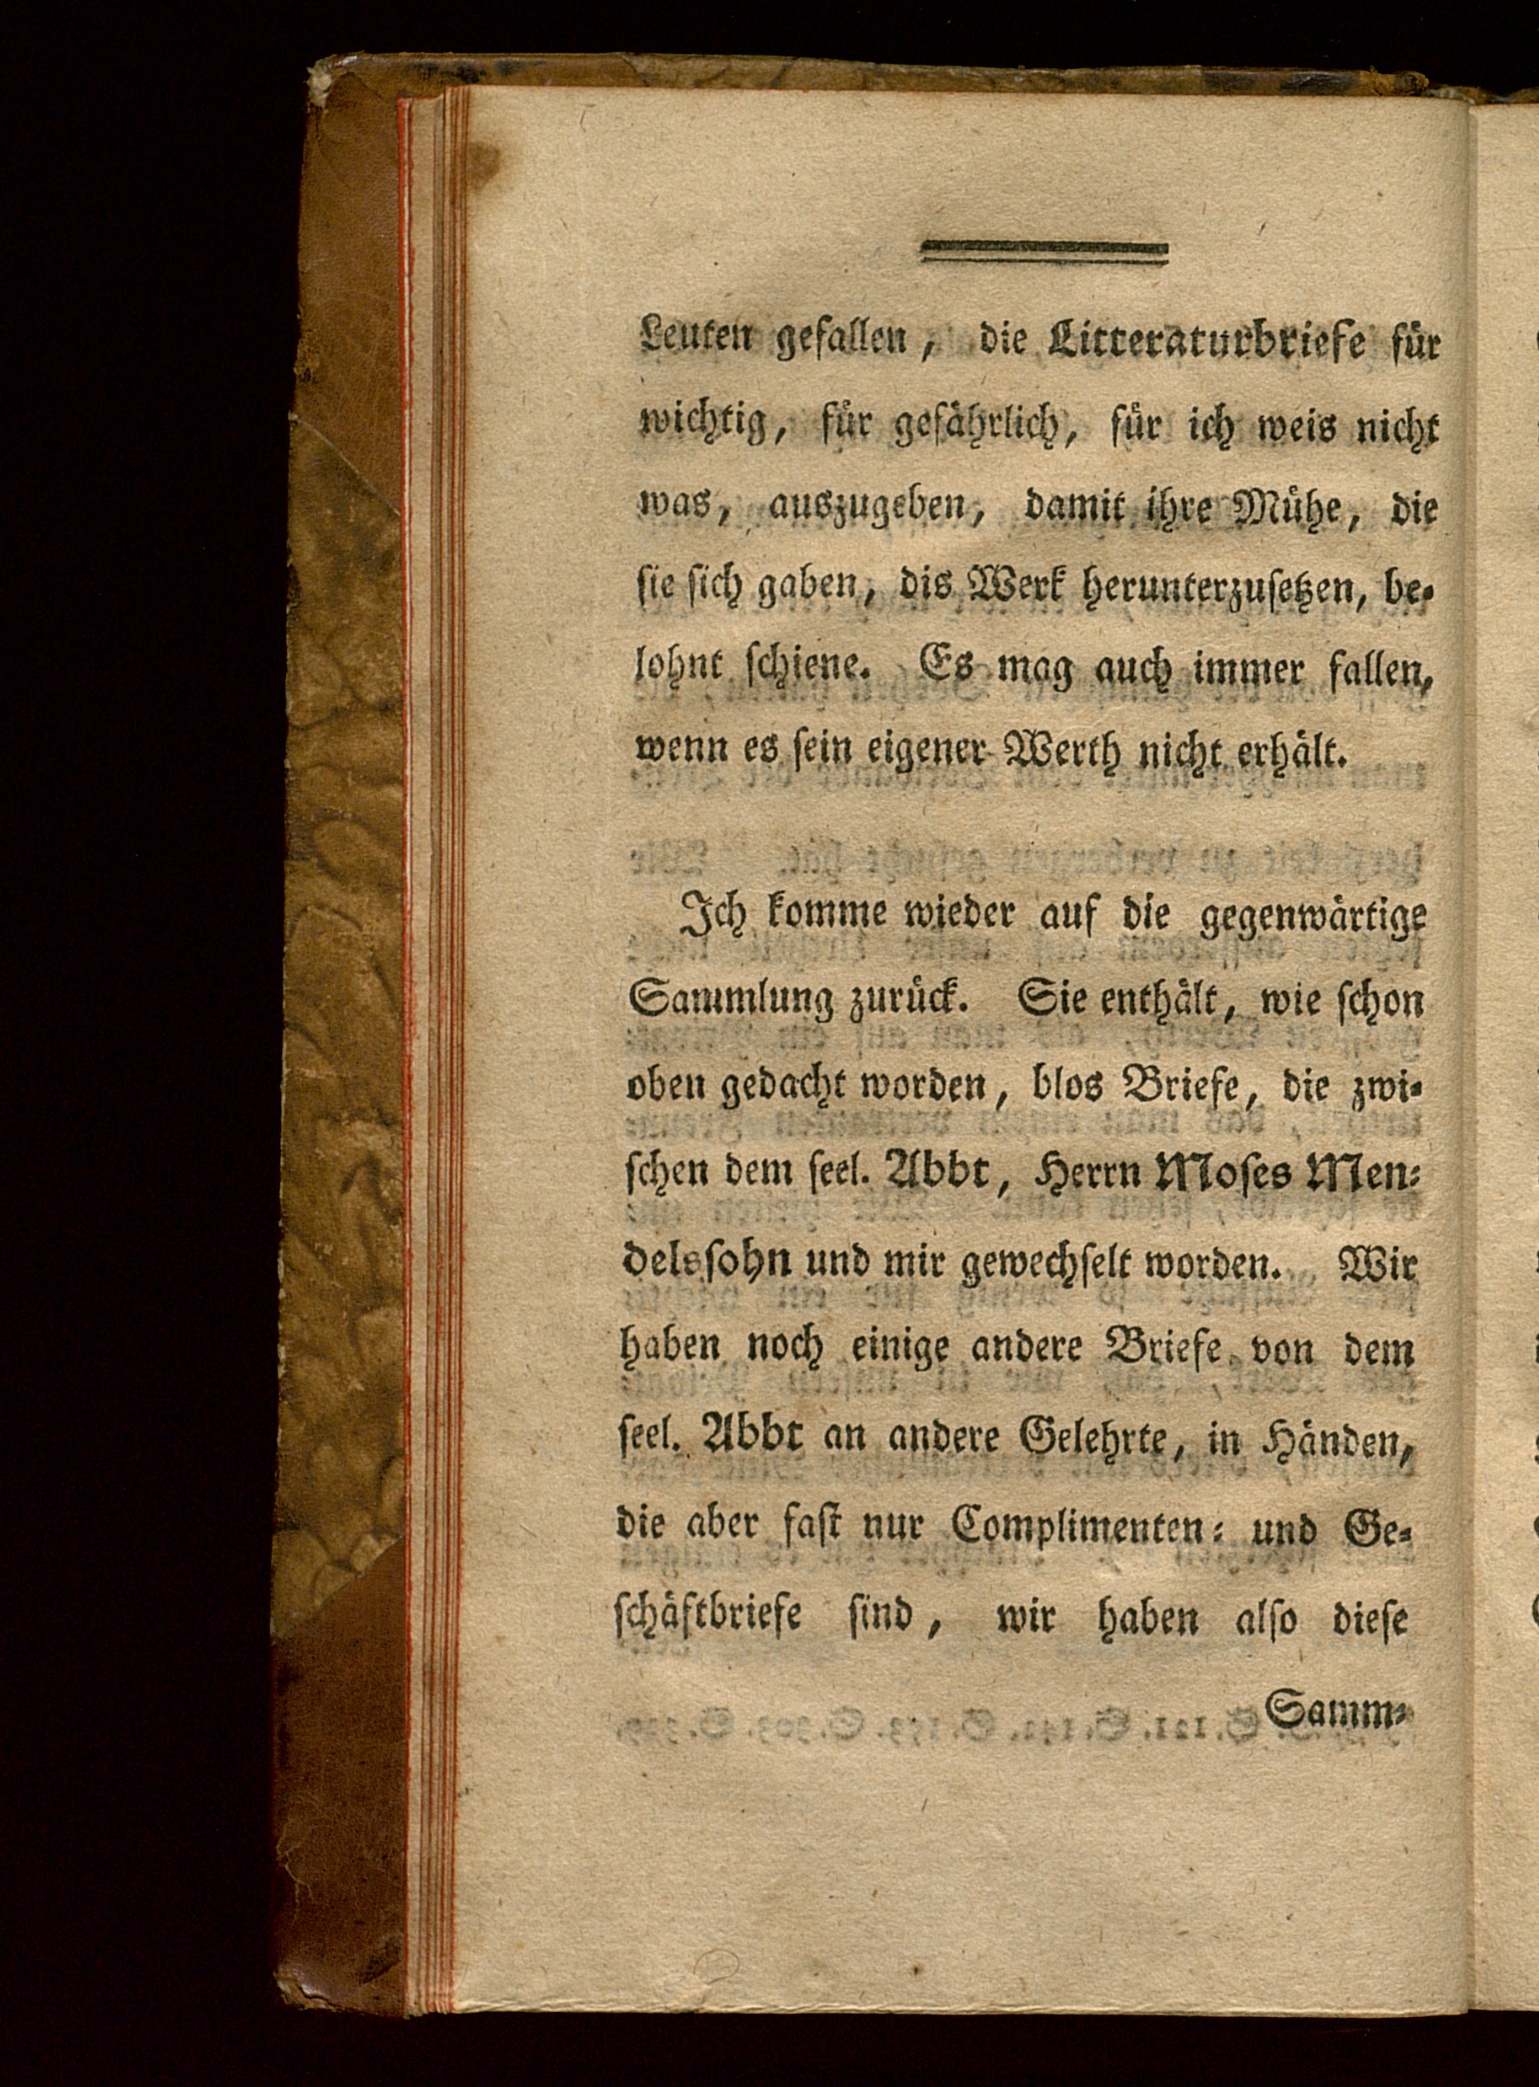 Leuten gefallen, die Litteraturbriefe für
wichtig, für gefährlich, für ich weis nicht
was, auszugeben, damit ihre Mühe, die
sie sich gaben, dis Werk herunterzuſetzen, be-
lohnt ſchiene. Es mag auch immer fallen,
wenn es ſein eigener Werth nicht erhält.
Ich komme wieder auf die gegenwärtige
Sammlung zurück. Sie enthält, wie ſchon
oben gedacht worden, blos Briefe, die zwi-
ſchen dem ſeel. Abbt, Herrn Moſes Men-
delsſohn und mir gewechſelt worden. Wir
haben noch einige andere Briefe von dem
ſeel. Abbt an andere Gelehrte, in Händen,
die aber faſt nur Complimenten- und Ge-
ſchäftbriefe ſind, wir haben alſo dieſe
Samm-